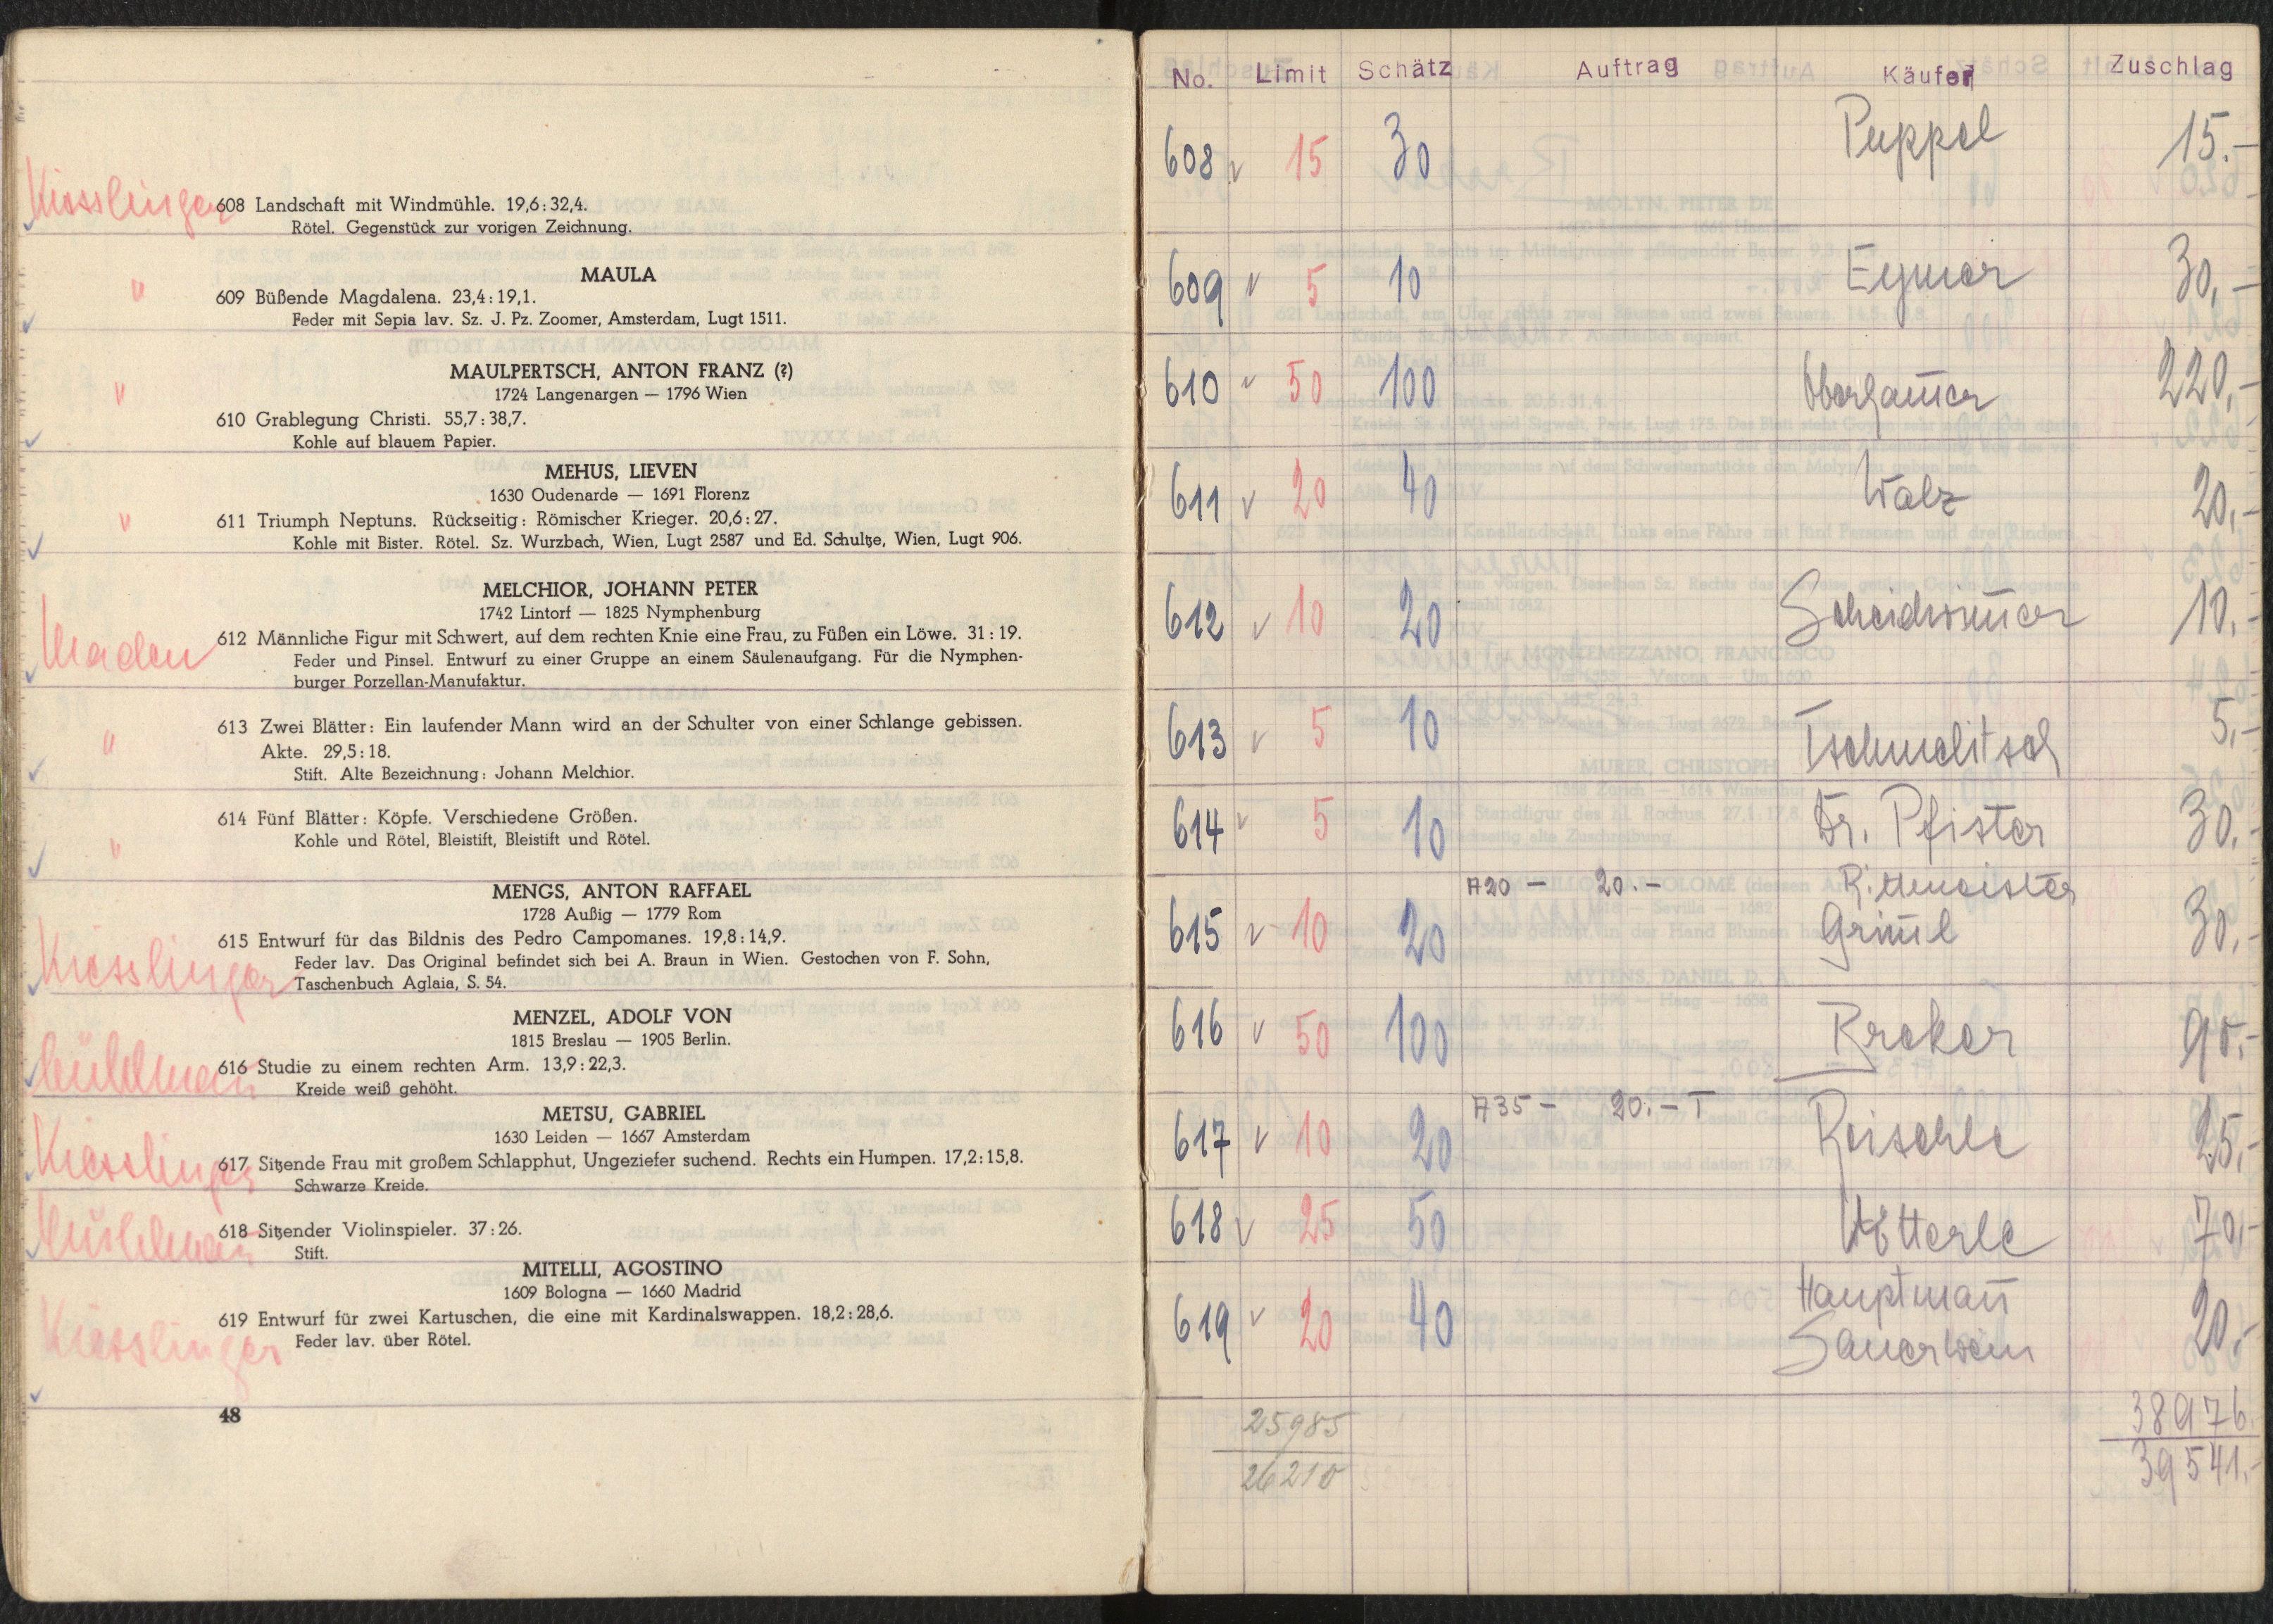 Kiesslinger
608 Landschaft mit Windmühle. 19,6:32,4.
Rötel. Gegenstück zur vorigen Zeichnung.
MAULA
"
609 Büßende Magdalena. 23,4:19,1.
Feder mit Sepia lav. Sz. J. Pz. Zoomer, Amsterdam, Lugt 1511.
MAULPERTSCH, ANTON FRANZ (?)
1724 Langenargen — 1796 Wien
"
610 Grablegung Christi. 55,7:38,7.
Kohle auf blauem Papier.
MEHUS, LIEVEN
1630 Oudenarde — 1691 Florenz
"
611 Triumph Neptuns. Rückseitig: Römischer Krieger. 20,6:27.
Kohle mit Bister. Rötel. Sz. Wurzbach, Wien, Lugt 2587 und Ed. Schultze, Wien, Lugt 906.
MELCHIOR, JOHANN PETER
1742 Lintorf — 1825 Nymphenburg
612 Männliche Figur mit Schwert, auf dem rechten Knie eine Frau, zu Füßen ein Löwe. 31:19.
Feder und Pinsel. Entwurf zu einer Gruppe an einem Säulenaufgang. Für die Nymphen-
burger Porzellan-Manufaktur.
613 Zwei Blätter: Ein laufender Mann wird an der Schulter von einer Schlange gebissen.
"
Akte. 29,5:18.
Stift. Alte Bezeichnung: Johann Melchior.
614 Fünf Blätter: Köpfe. Verschiedene Größen.
"
Kohle und Rötel, Bleistift, Bleistift und Rötel.
MENGS, ANTON RAFFAEL
1728 Außig — 1779 Rom
615 Entwurf für das Bildnis des Pedro Campomanes. 19,8:14,9.
Kiesslinger
Feder lav. Das Original befindet sich bei A. Braun in Wien. Gestochen von F. Sohn,
Taschenbuch Aglaia, S. 54.
MENZEL, ADOLF VON
1815 Breslau — 1905 Berlin.
616 Studie zu einem rechten Arm. 13,9:22,3.
Kreide weiß gehöht.
METSU, GABRIEL
1630 Leiden — 1667 Amsterdam
Kiesslinger
617 Sitzende Frau mit großem Schlapphut, Ungeziefer suchend. Rechts ein Humpen. 17,2:15,8.
Schwarze Kreide.
618 Sitzender Violinspieler. 37:26.
Stift.
MITELLI, AGOSTINO
1609 Bologna — 1660 Madrid
619 Entwurf für zwei Kartuschen, die eine mit Kardinalswappen. 18,2:28,6.
Kiesslinger
Feder lav. über Rötel.
48
No. Limit Schätz Auftrag Käufer Zuschlag
608 15 30 Puppel 15.-
609 5 10 Eymer 30,-
610 50 100 220,-
611 20 40 Walz 20,-
612 10 20 10,-
613 5 10 5,-
614 5 10 Dr. Pfister 30.-
A20 — 20.- Rittmeister
615 10 20 Griml 30,-
616 50 100 Kreker 90.-
A35 — 20.- T
617 10 20 Reischle 25,-
618 25 50 70,-
Hauptmann
619 20 40 20.-
Sauerwein
25985 38976.
26210 39541.-